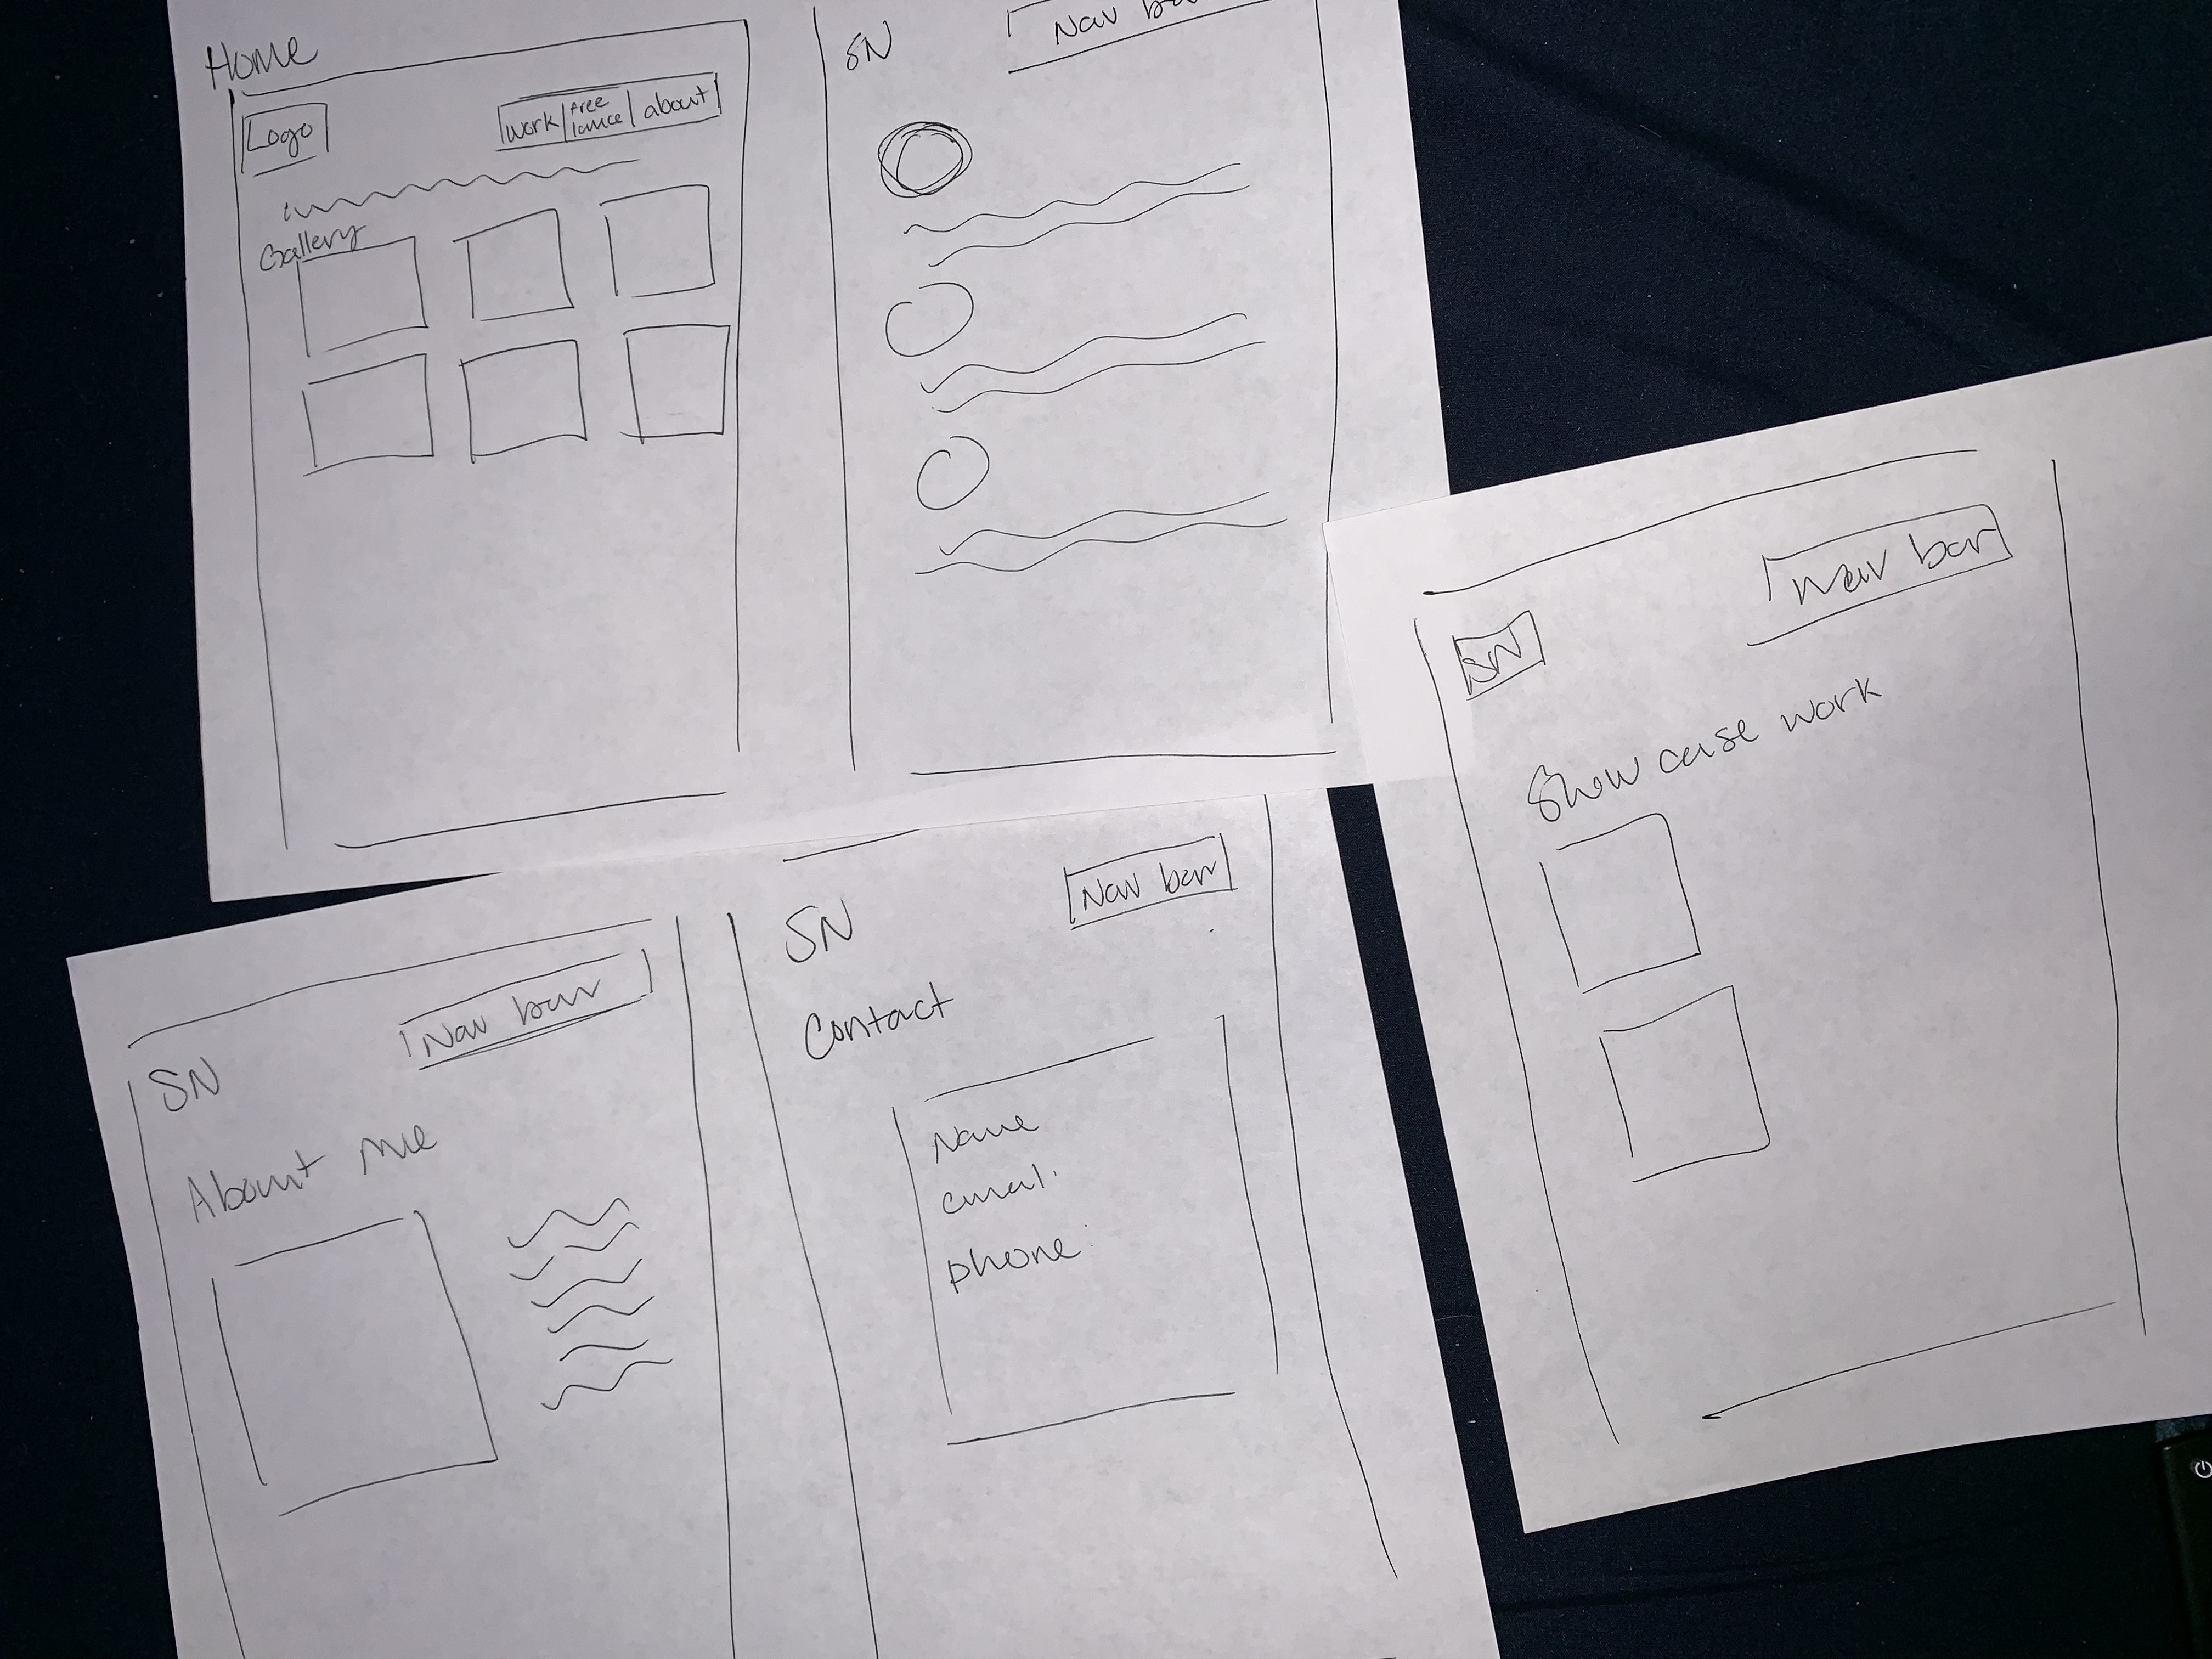 Home
Logo
work
free
lance
about
Gallery
SN
Nav bar
SN
Nav bar
Show case work
Nav bar
SN
About me
Nav bar
SN
Contact
Name
email:
phone: